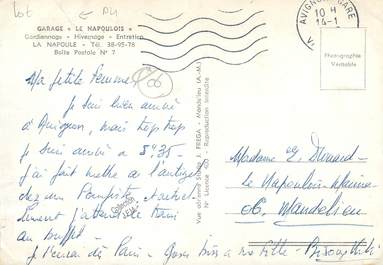 lot
GARAGE « LE NAPOULOIS »
Gardiennage - Hivernage - Entretien
LA NAPOULE - Tél. 38-95-78
Boîte Postale N° 7
AVIGNON GARE
10 H
14-1
Photographie
Véritable
06
Ma petite femme
je suis bien arrivé
à Avignon, mais trop trop
je suis arrivé à 5h35.
j'ai fait mettre à l'
chez un Pompiste
j'attends le train
au buffet -
je t' de Paris - Gros bises à ma fille - 
Vue aérienne S.P.A.D. FREGA - Mandelieu (A.-M.)
N° Licence 400 - Reproduction Interdite
Collection
Madame E.
Le Napoulois - Marine
06. Mandelieu